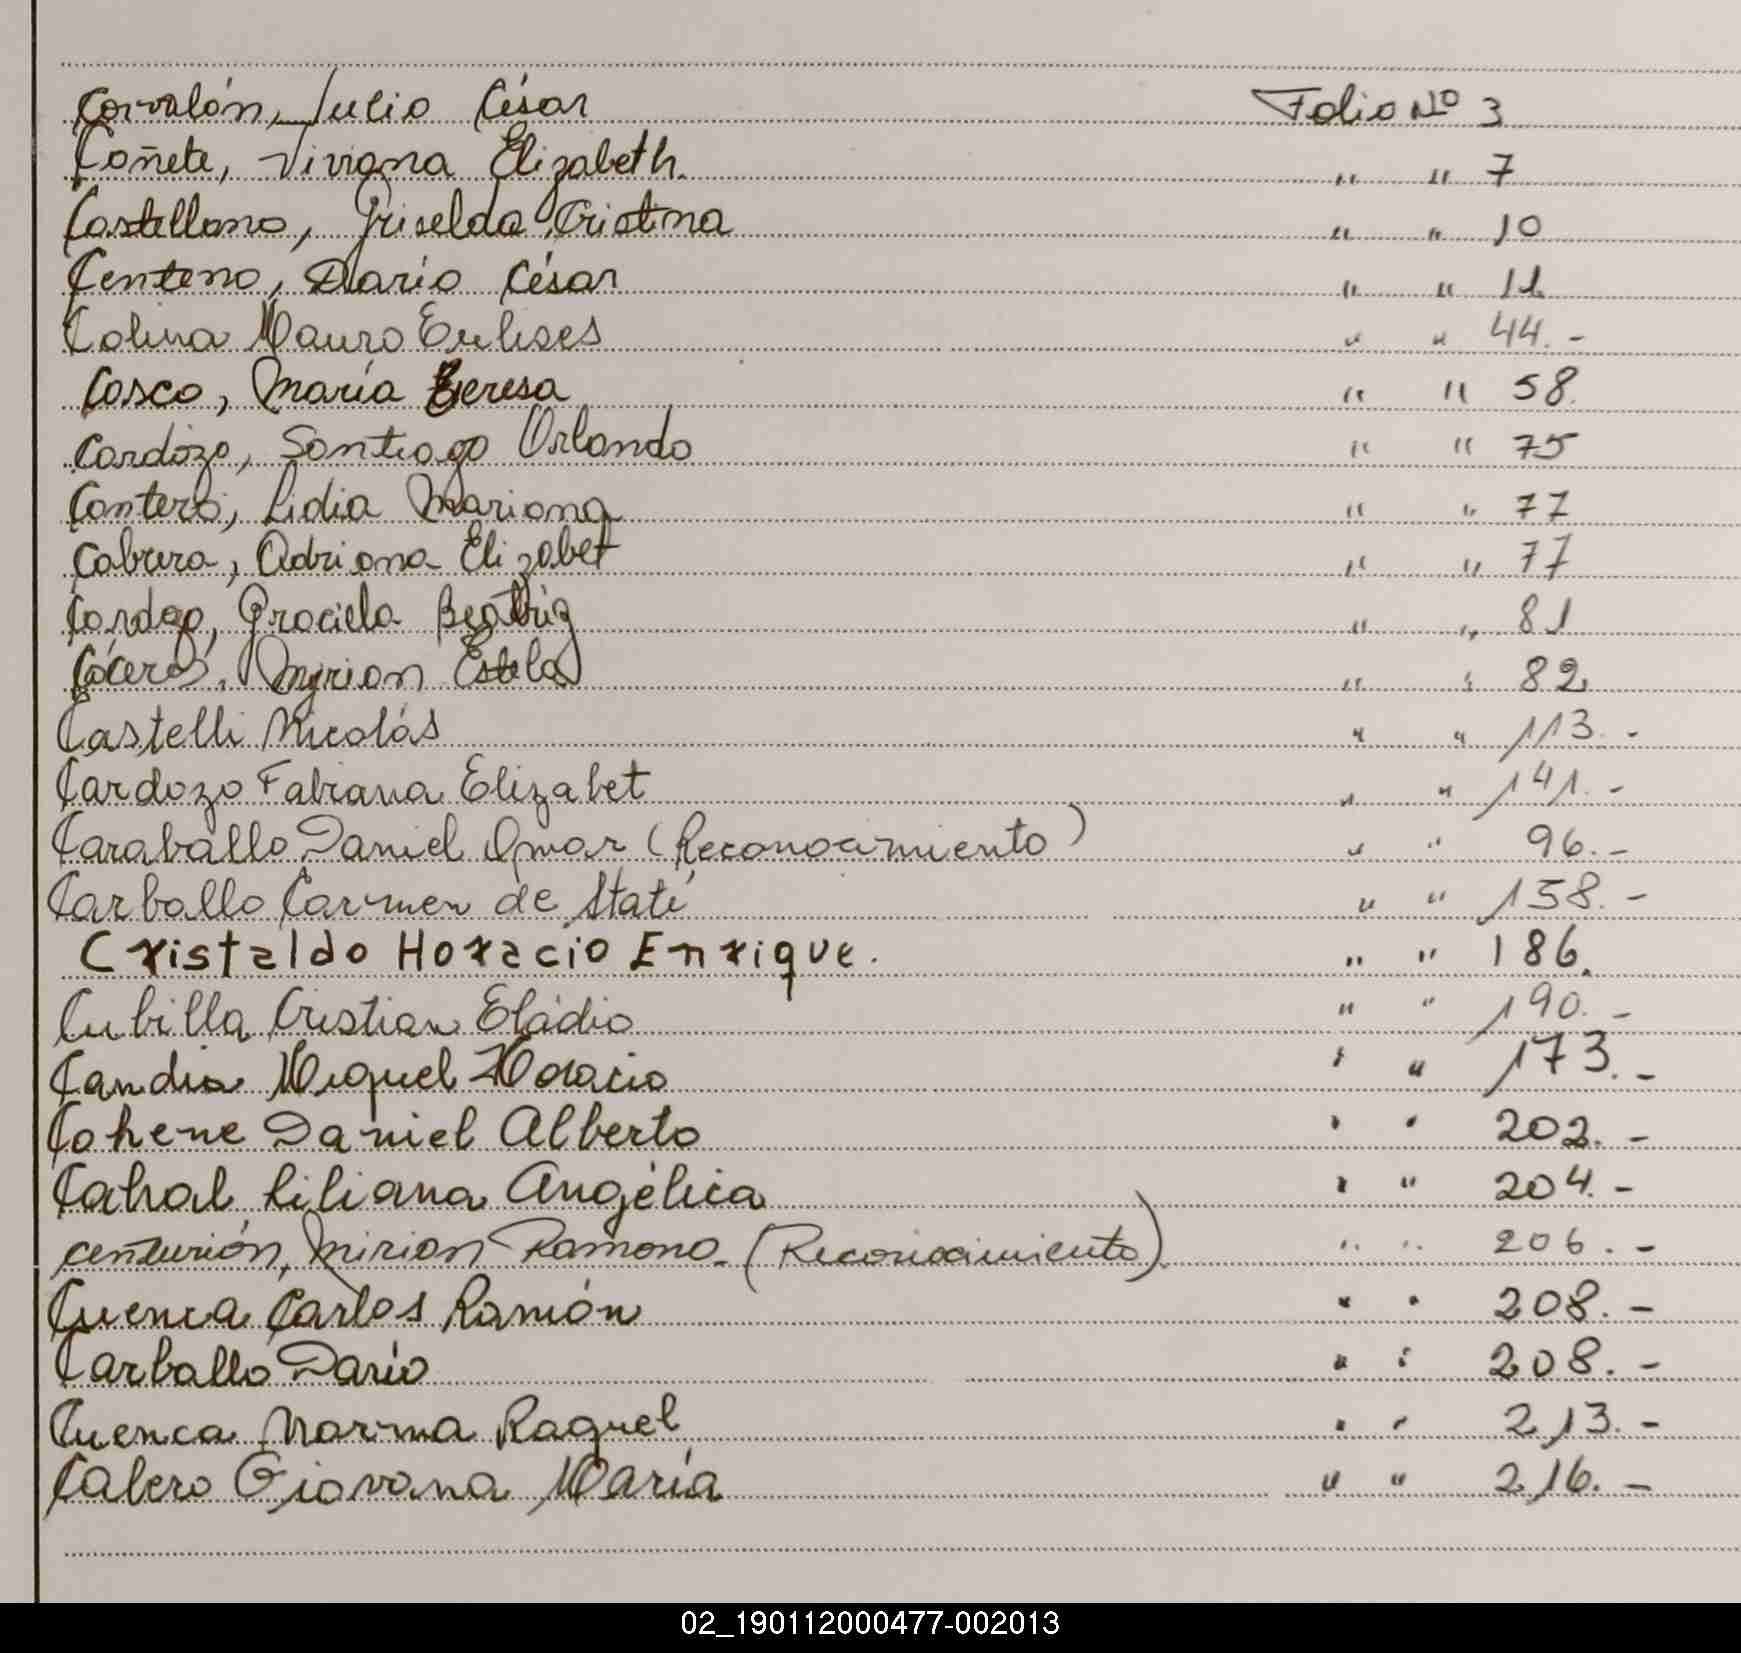 Corvalón, Julio César Folio Nº 3
Coñete, Viviana Elizabeth. " " 7
Castellano, Griselda Cristina " " 10
Centeno, Darío César " " 11
Colina Mauro Eulises " " 44.-
Cosco, María Teresa " " 58.
Cardozo, Santiago Orlando " " 75
Contero, Lidia Mariana " " 77
Cabrera, Adriana Elizabet " " 77
Graciela Beatriz " " 81
Cáceres, Myrian Estela " " 82
Castelli Nicolás " " 113.-
Cardozo Fabiana Elizabet " " 141.-
Caraballo Daniel Omar (Reconocimiento) " " 96.-
Carballo Carmen de " " 158.-
Cristaldo Horacio Enrique. " " 186.
Cubilla Cristian Eládio " " 190.-
Candia Miguel Horacio " " 173.-
Cohene Daniel Alberto " " 202.-
Cabral Liliana Angélica " " 204.-
Centurión, Mirian Ramona. (Reconocimiento) " " 206.-
Cuenca Carlos Ramón " " 208.-
Carballo Darío " " 208.-
Cuenca Norma Raquel " " 213.-
Calero Giovana María " " 216.-
02_190112000477-002013